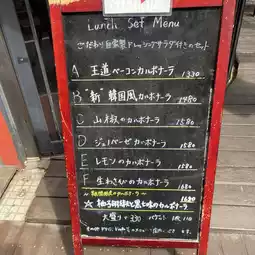 Lunch Set Menu
こだわり自家製ドレッシングサラダ付きのセット
A 王道ベーコンカルボナーラ 1330
B 新 韓国風カルボナーラ 1480
C 山椒のカルボナーラ 1580
D ジェノベーゼカルボナーラ 1580
E レモンのカルボナーラ 1580
F 生わさびのカルボナーラ 1680
～期間限定のカルボナーラ～
☆ 柚子胡椒と黒七味のカルボナーラ 1680
大盛り 330